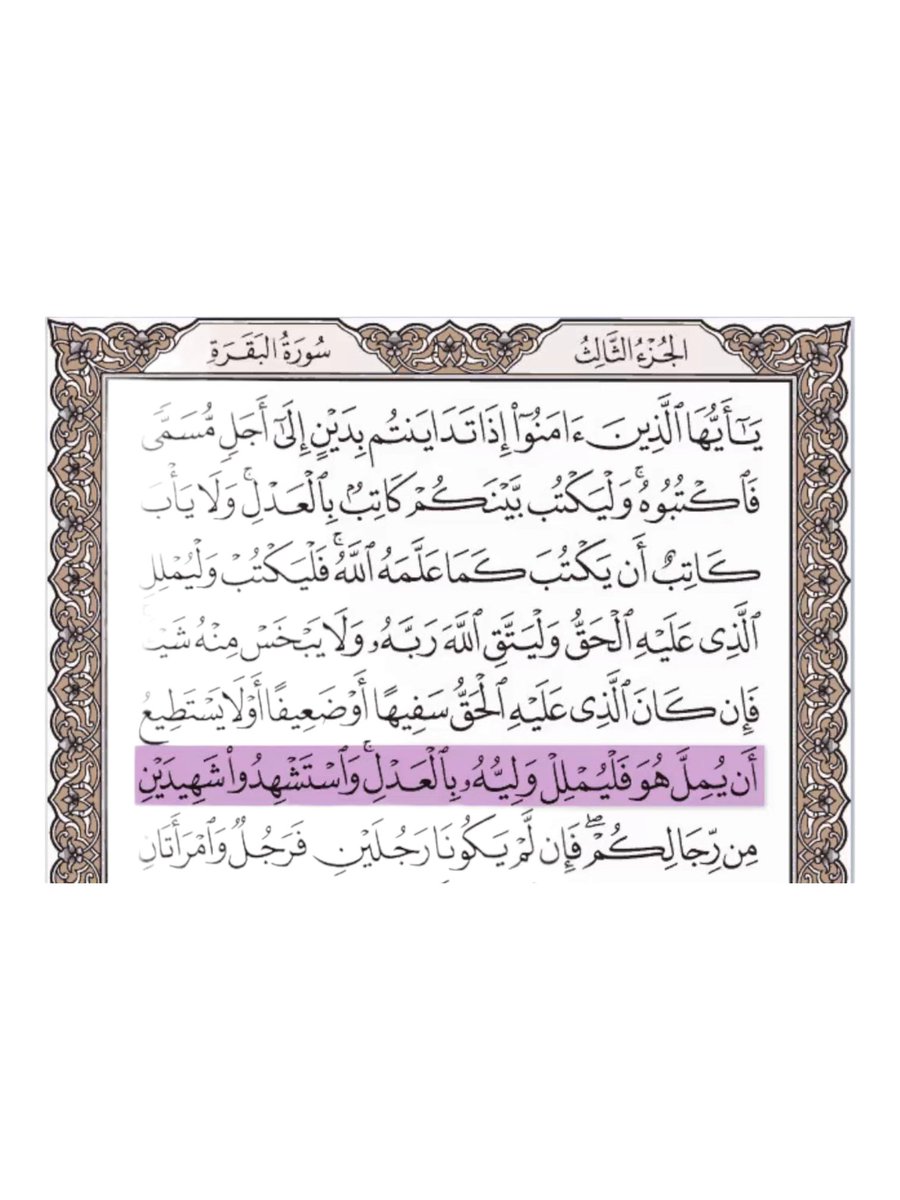 الجُزْءُ الثَّالِثُ
سُورَةُ البَقَرَةِ
يَـٰٓأَيُّهَا ٱلَّذِينَ ءَامَنُوٓا۟ إِذَا تَدَايَنتُم بِدَيْنٍ إِلَىٰٓ أَجَلٍ مُّسَمًّى
فَٱكْتُبُوهُ ۚ وَلْيَكْتُب بَّيْنَكُمْ كَاتِبٌۢ بِٱلْعَدْلِ ۚ وَلَا يَأْبَ
كَاتِبٌ أَن يَكْتُبَ كَمَا عَلَّمَهُ ٱللَّهُ ۚ فَلْيَكْتُبْ وَلْيُمْلِلِ
ٱلَّذِى عَلَيْهِ ٱلْحَقُّ وَلْيَتَّقِ ٱللَّهَ رَبَّهُۥ وَلَا يَبْخَسْ مِنْهُ
فَإِن كَانَ ٱلَّذِى عَلَيْهِ ٱلْحَقُّ سَفِيهًا أَوْ ضَعِيفًا أَوْ لَا يَسْتَطِيعُ
أَن يُمِلَّ هُوَ فَلْيُمْلِلْ وَلِيُّهُۥ بِٱلْعَدْلِ ۚ وَٱسْتَشْهِدُوا۟ شَهِيدَيْنِ
مِن رِّجَالِكُمْ ۖ فَإِن لَّمْ يَكُونَا رَجُلَيْنِ فَرَجُلٌ وَٱمْرَأَتَانِ